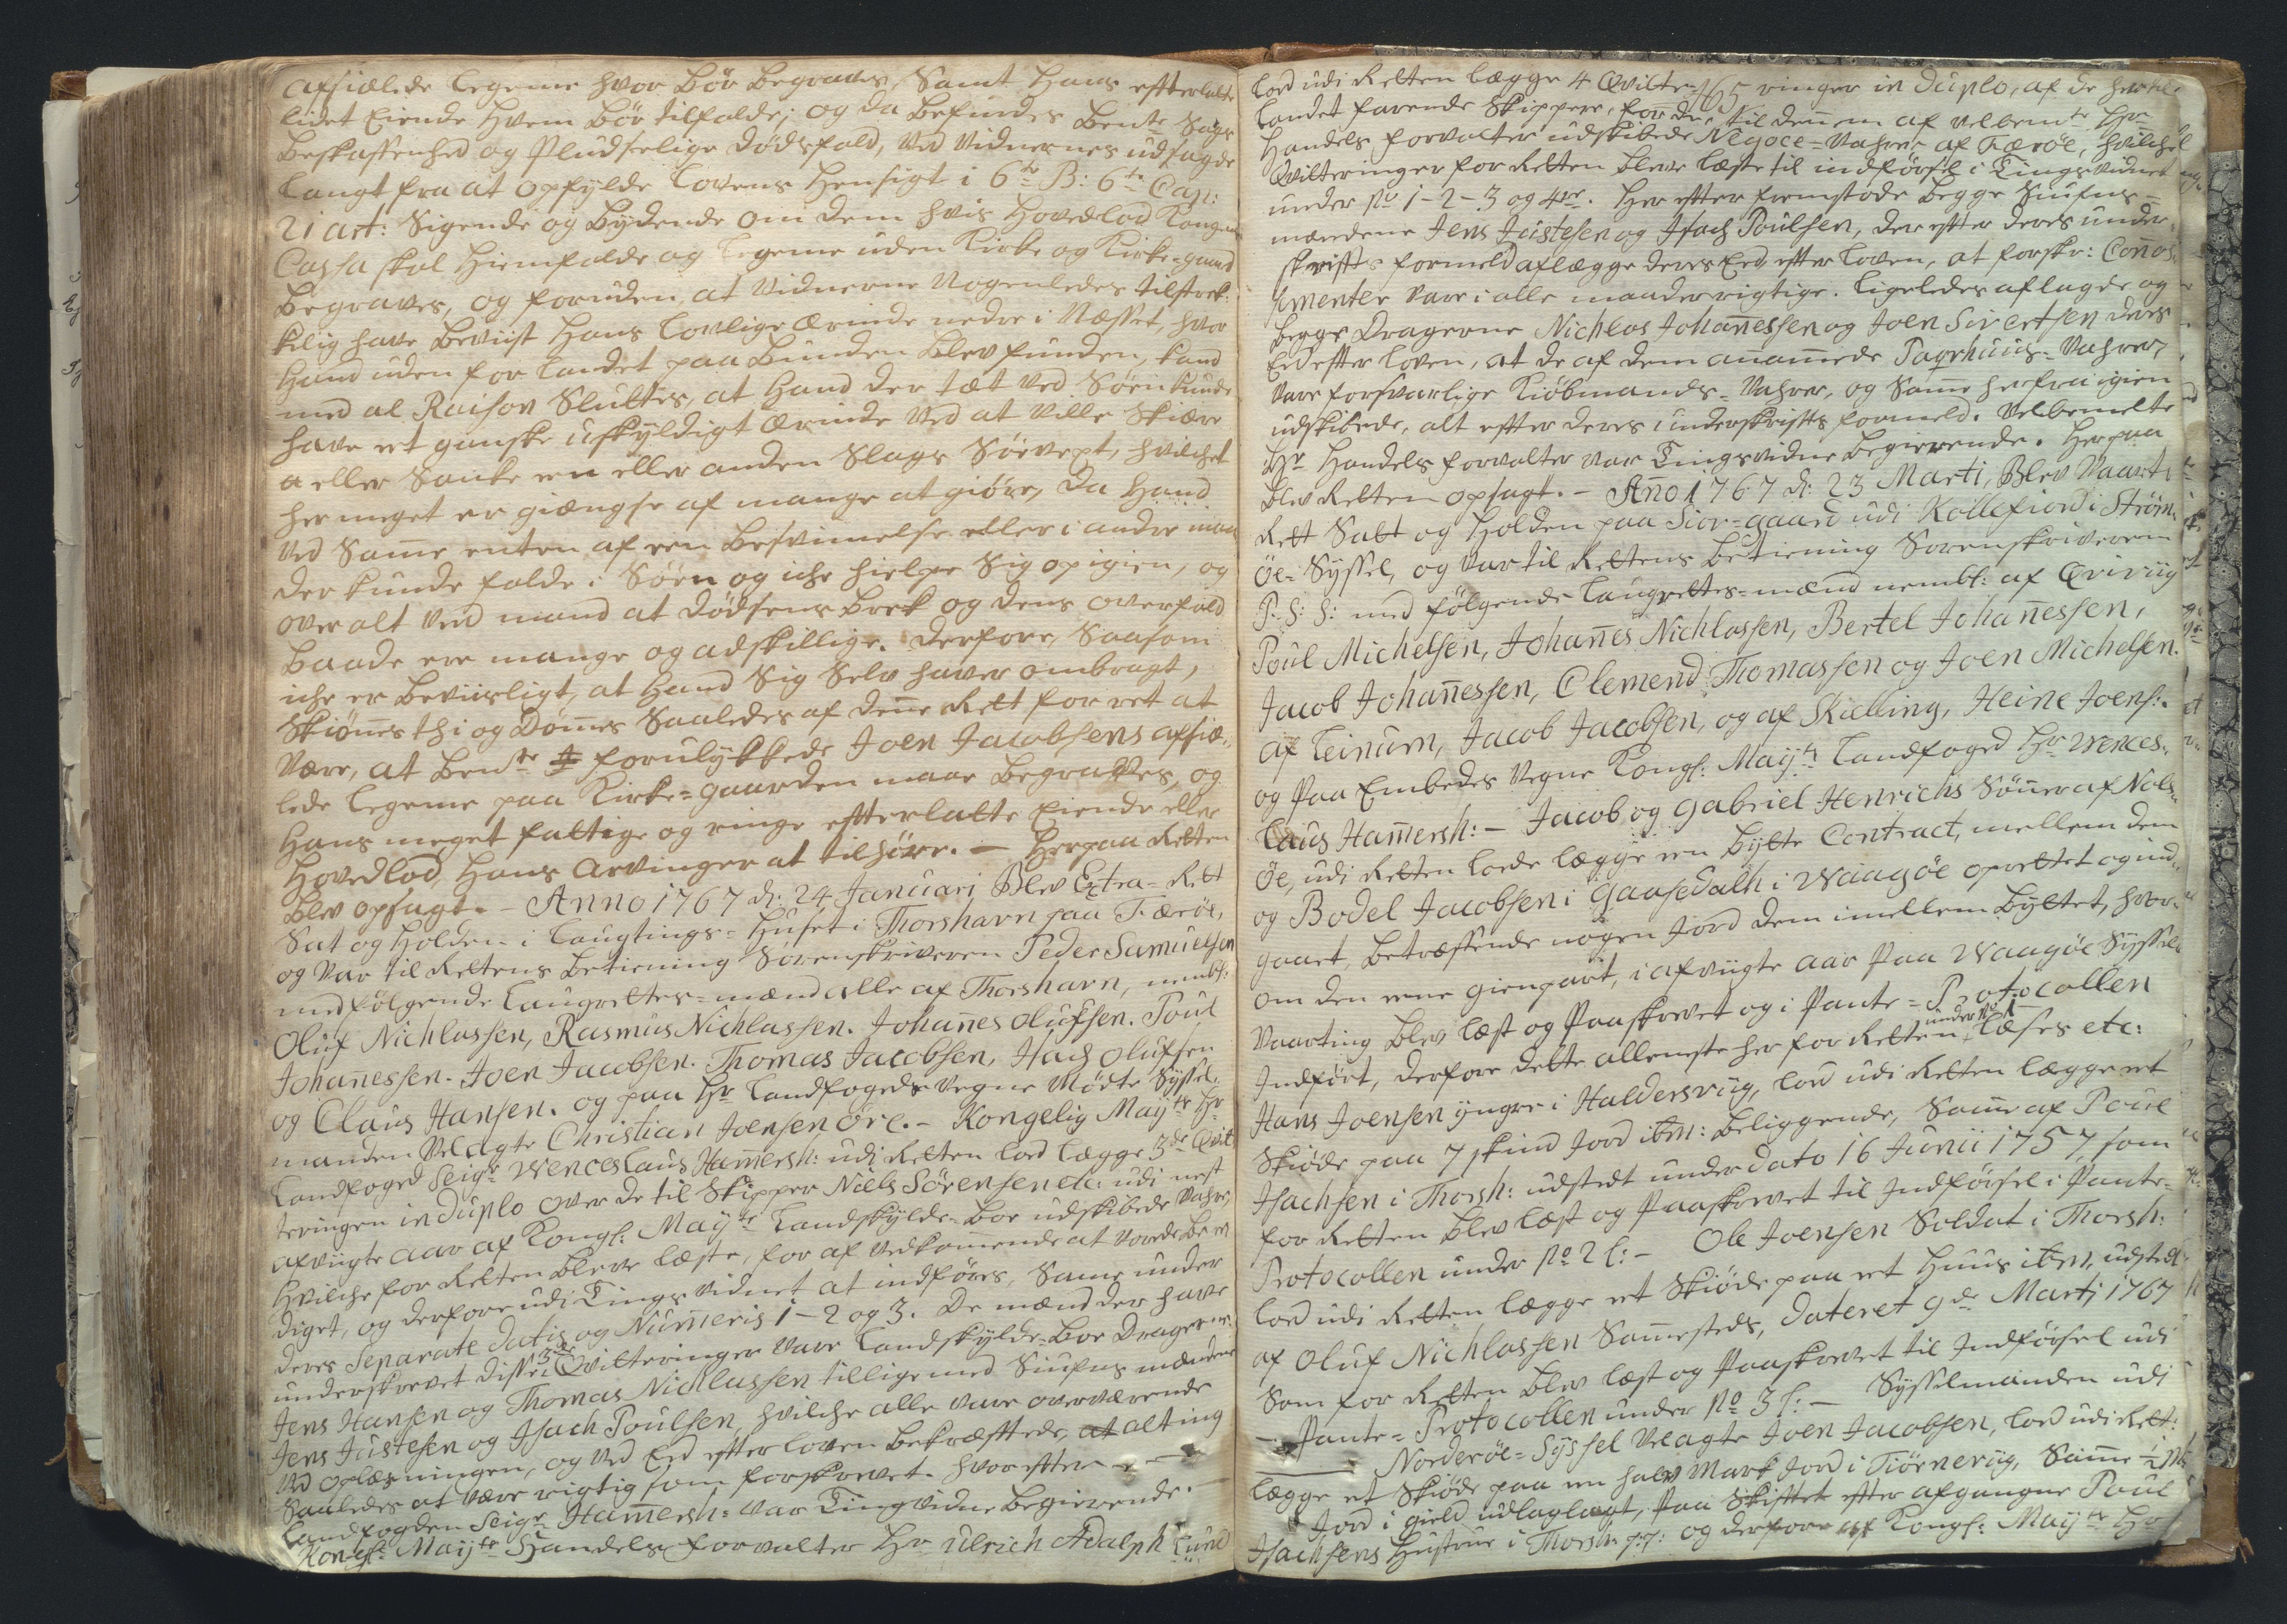 afsiælede legeme hvor bør begraves, Samt hans efterlatte
lidet Eiende hvem bør tilfalde; og da befindes bem.te Sags
beskaffenhed og Pludselige dødsfald, ved vidnernes udsagde
langt fra at opfylde Lovens Hensigt i 6te B: 6te Cap:
21 art: Sigende og bydende om dem hvis hovedlod Kongens
Cassa skal hiemfalde og legeme uden Kirke og Kirke-gaard
begraves, og foruden, at vidnerne nogenledes tilstræk-
kelig have beviist hans lovlige Ærinde nedre i Næsset, hvor
hand uden for landet paa bunden blev funden, kand
med al Raison Sluttes, at hand der tæt ved Søen kunde
have et ganske uskyldigt Ærinde ved at ville Skiære
a eller Sanke een eller anden Slags Søevext, hvilchet
her meget er giængse af mange at giøre, da hand
ved Samme enten af een besvimelse eller i andre maa
der kunde falde i Søen og iche hielpe Sig op igien, og
over alt veed mand at dødsens brek og dens overfald
baade ere mange og adskillige. Derfore, Saasom
iche er beviisligt, at hand Sig Selv haver ombragt,
Skiønnes thi og Dømmes Saaledes af denne Rett for ret at
være, at bem.te forulykkede Joen Jacobsens afsiæ-
lede legeme paa Kirke-gaarden maae begraves, og
hans meget fattige og ringe efterlatte Eiende eller
Hovedlod, hans Arvinger at tilhøre. — Herpaa Retten
blev opsagt. — Anno 1767 d: 24 Januari Blev Extra-Rett
Sat og holden i Laugtings-Huset i Thorshavn paa Færöe,
og var til Rettens betiening Sorenskriveren Peder Samuelsen
med følgende Laugrettes-mænd alle af Thorshavn, nembl:
Oluf Nichlassen, Rasmus Nichlassen. Johannes Olufsen. Poul
Johannessen. Joen Jacobsen. Thomas Jacobsen, Isach Olufsen
og Claus Hansen. og paa Hr Landfogeds vegne mödte Syssel-
manden Velagte Christian Joensen Öre. — Kongelig Mayts Hr
Landfoged Seigr Wenceslaus Hammersh: udi Retten lod lægge 3de Qvit-
teringer in duplo over de til Skipper Niels Sörensen etc: udi nest
afvigte aar af Kongl: Mayts Landskylds-Boe udskibede vahre,
hvilche for Retten bleve læste, for af vedkommende at vorde be-
diget, og derfore udi Tingsvidnet at indføres, Samme under
deres Separate Datis og Numeris 1-2 og 3. De mænd der have
underskrevet disse 3de Qvitteringer vare Landskylds-boe Dragerne
Jens Hansen og Thomas Nichlassen tilligemed Siufns mændene
Jens Justesen og Isach Poulsen, hvilche alle vare overværende
ved oplæsningen, og ved Eed efter loven bekræftede, at alting
Saaledes at være rigtig som forskrevet. hvor efter
Landfogden Seigr Hammersh: var Tingsvidne begierende.
Kongl: Mayts Handels forvalter Hr Ulrich Adolph Lund
lod udi Retten lægge 4 Qvitte- 165 ringer in Duplo, af de her til
Landet farende Skippere, for de til dennem af velbem.te Hr
Handels forvalter udskibede Negoce-vahre af Færöe, hvilche
Qvitteringer for Retten bleve læste til indførsel i Tingsvidnet
under No 1-2-3 og 4re. Her efter fremstode begge Siufns-
mændene Jens Justesen og Isach Poulsen, der efter deres under-
skrifts formeld aflægge deres Eed efter loven, at forskr: Connos-
sementer vare i alle maader rigtige. Ligeledes aflagde og
begge Dragerne Nichlas Johannessen og Joen Sivertsen deres
Eed efter loven, at de af dem annammede Pachuus-vahrer,
vare forsvarlige Kiøbmands-vahrer, og Samme herfra igien
udskibede, alt efter deres underskrifts formeld. Velbemelte
Hr Handels forvalter var Tingsvidne begierende. Herpaa
blev Retten opsagt. — Anno 1767 d: 23 Marti, Blev Vaarti-
Rett Sat og holden paa Sior-gaard udi Kollefiord i Ströms
Öe-Syssel, og var til Rettens betiening Sorenskriveren
P: S: S: med følgende Laugrettes-mænd nembl: af Qvivüg
Poul Michelsen, Johannes Nichlassen, Bertel Johannessen,
Jacob Johannessen, Clemend Thomassen og Joen Michelsen.
af Leinum, Jacob Jacobsen, og af Skælling, Heine Joens:
og paa Embedes vegne Kongl: Mayts Landfoged Hr Wences-
laus Hammersh: — Jacob og Gabriel Henrichs Sønner af Nols-
Öe, udi Retten lode lægge een bytte Contract, mellem dem
og Bodel Jacobsen i Gaasedalh i Waagöe oprettet og ind-
gaaet, betræffende nogen Jord dem imellem byttet, hvor-
om den eene gienpart, i afvigte aar paa Waagöe Syssels
Vaarting blev læst og paaskrevet og i Pante-Protocollen
Indført, derfore dette alleneste her for Retten under No 1 læses etc:
Hans Joensen yngre i Haldersvüg, lod udi Retten lægge et
Skiøde paa 7 skind Jord ibm: beliggende, Samme af Poul
Isachsen i Thorsh: udstedt under dato 16 Junii 1757, som
for Retten blev læst og paaskrevet til Indførsel i Pante-
Protocollen under No 2 l: — Ole Joensen Soldat i Thorsh:
lod udi Retten lægge et Skiøde paa et Huus ibm, udstedt
af Oluf Nichlassen Sammesteds, dateret 9de Marti 1767
Som for Retten blev læst og paaskrevet til Indførsel udi
Pante-Protocollen under No 3 l: — Sysselmanden udi
Norderöe-Syssel Velagte Joen Jacobsen, lod udi Rett:
lægge et Skiøde paa een halv Mark Jord i Tiørnevüg, Samme ½ Mk
Jord i gield udlaglagt, paa Skiftet efter afgangne Poul
Isachsens Hustrue i Thorsh: og derfore af Kongl: Mayts Hr